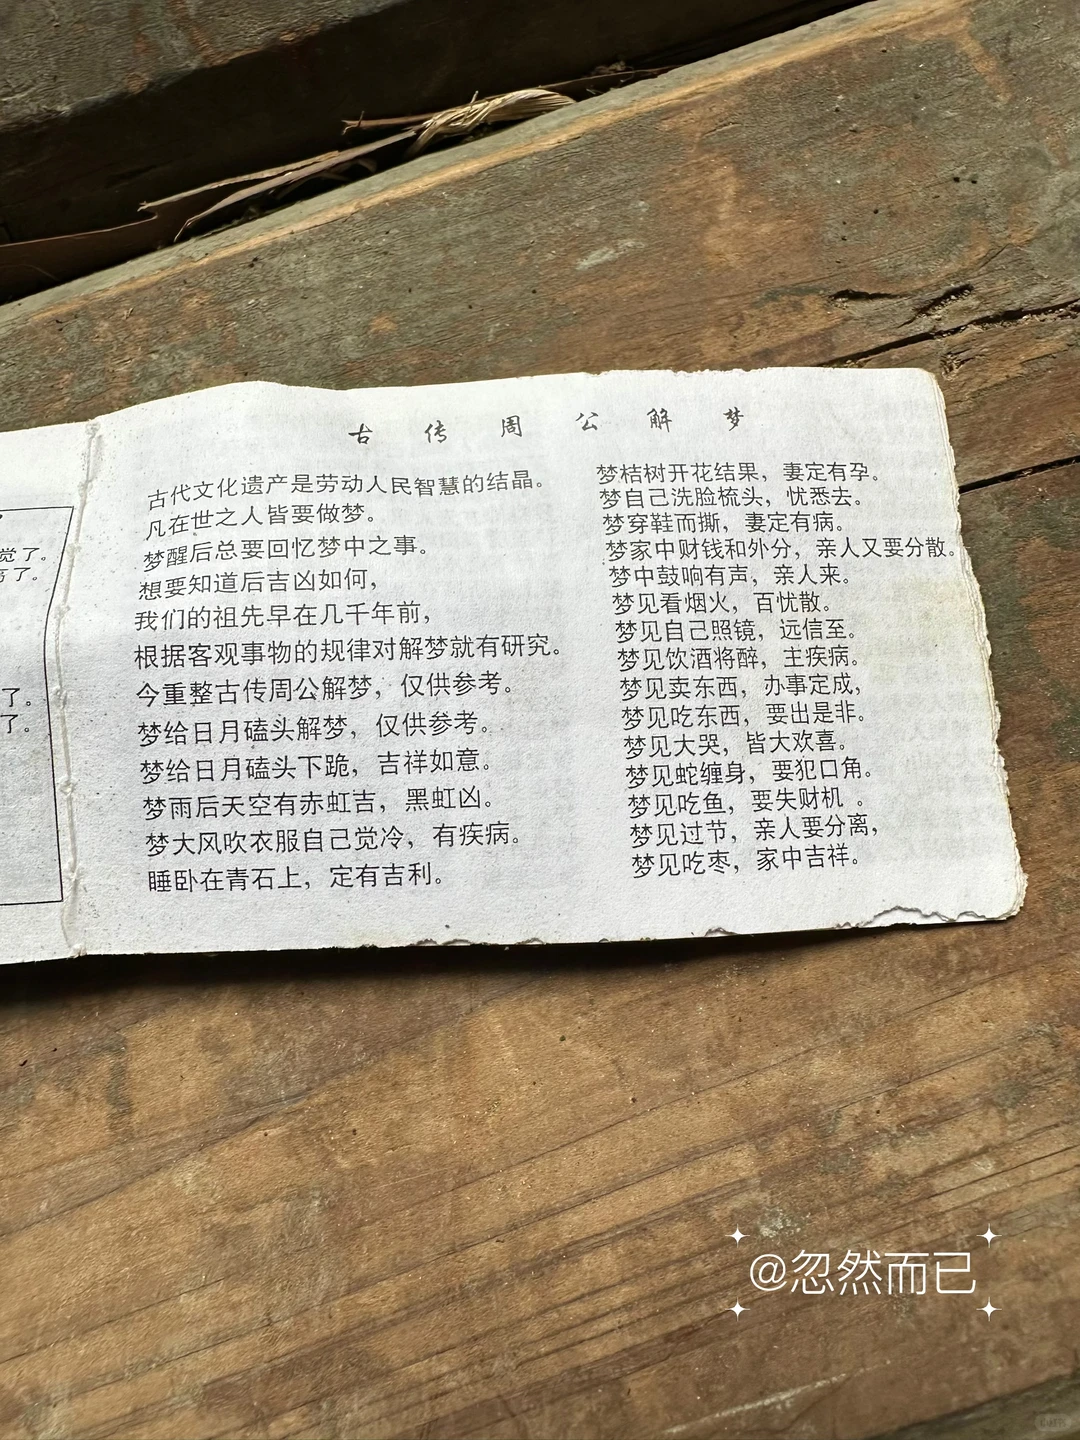 古传周公解梦
古代文化遗产是劳动人民智慧的结晶。
凡在世之人皆要做梦。
梦醒后总要回忆梦中之事。
想要知道后吉凶如何，
我们的祖先早在几千年前，
根据客观事物的规律对解梦就有研究。
今重整古传周公解梦，仅供参考。
梦给日月磕头解梦，仅供参考。
梦给日月磕头下跪，吉祥如意。
梦雨后天空有赤虹吉，黑虹凶。
梦大风吹衣服自己觉冷，有疾病。
睡卧在青石上，定有吉利。
梦桔树开花结果，妻定有孕。
梦自己洗脸梳头，忧悉去。
梦穿鞋而撕，妻定有病。
梦家中财钱和外分，亲人又要分散。
梦中鼓响有声，亲人来。
梦见看烟火，百忧散。
梦见自己照镜，远信至。
梦见饮酒将醉，主疾病。
梦见卖东西，办事定成，
梦见吃东西，要出是非。
梦见大哭，皆大欢喜。
梦见蛇缠身，要犯口角。
梦见吃鱼，要失财机。
梦见过节，亲人要分离，
梦见吃枣，家中吉祥。
觉了。
了。
了。
了。
@忽然而已